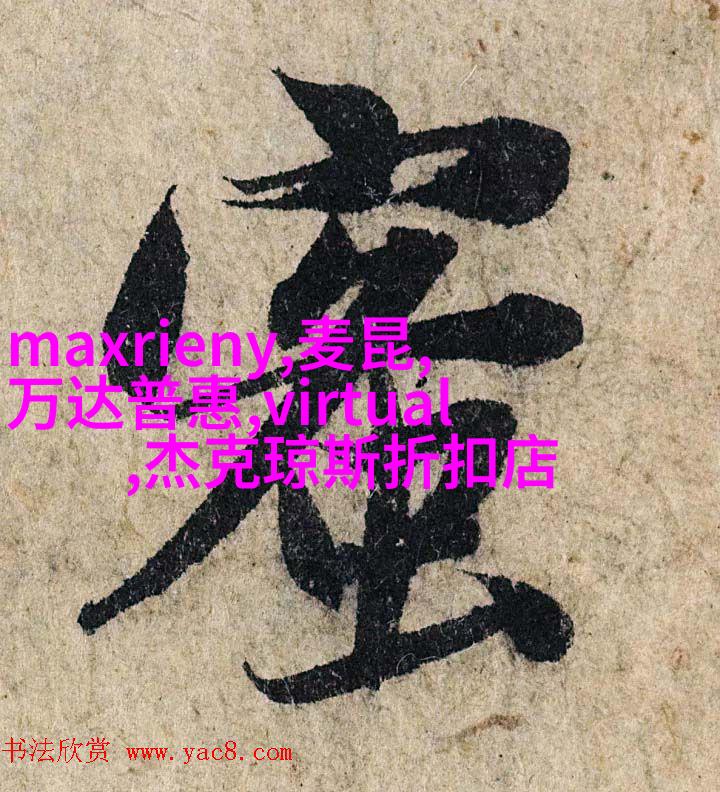 maxrieny,麦昆,
万达普惠,virtual
,杰克琼斯折扣店
书法欣赏 www.yac8.com